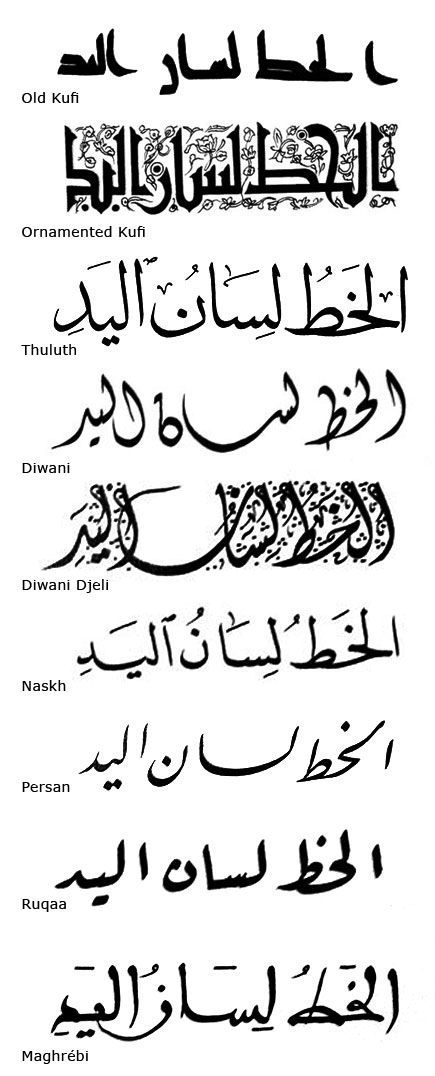 الخط لسان اليد
Old Kufi
الخط لسان اليد
Ornamented Kufi
الخَطُ لِسَانُ ٱليَدِ
Thuluth
الخط لسان اليد
Diwani
الخَطُ لِسَانُ اليَدِ
Diwani Djeli
الخَطُ لِسَانُ ٱليَدِ
Naskh
الخط لسان اليد
Persan
الخط لسان اليد
Ruqaa
الخَطُ لِسَانُ اليَدِ
Maghrébi